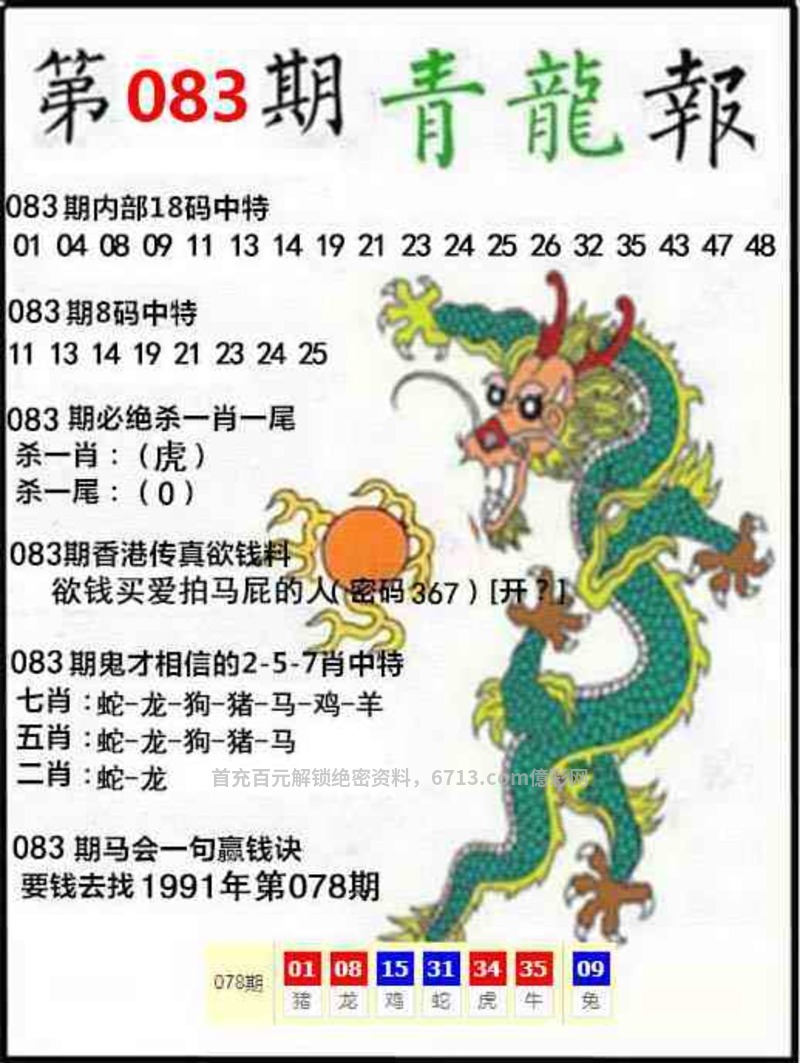 第083期青龍報
083期内部18码中特
01 04 08 09 11 13 14 19 21 23 24 25 26 32 35 43 47 48
083期8码中特
11 13 14 19 21 23 24 25
083期必绝杀一肖一尾
杀一肖：（虎）
杀一尾：（0）
083期香港传真欲钱料
欲钱买爱拍马屁的人(密码367)[开？]
083期鬼才相信的2-5-7肖中特
七肖：蛇-龙-狗-猪-马-鸡-羊
五肖：蛇-龙-狗-猪-马
二肖：蛇-龙
首充百元解锁绝密资料，6713.com億彩网
083期马会一句赢钱诀
要钱去找1991年第078期
078期 01 08 15 31 34 35 09
猪 龙 鸡 蛇 虎 牛 兔